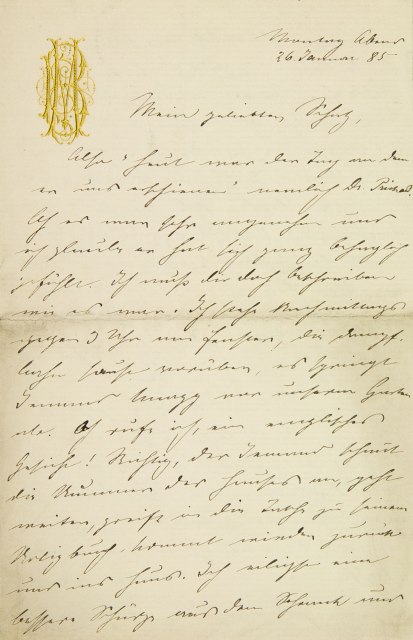 Montag Abend
26 Januar 85
Mein geliebter Schatz,
Also "heut war der Tag an dem
er uns erschienen" nemlich Dr.
Ach es war sehr angenehm und
ich glaube er hat sich ganz behaglich
gefühlt. Ich muß dir doch beschreiben
wie es war. Ich stehe Nachmittags
gegen 3 Uhr am Fenster, die Dampf-
bahn sauste vorüber, es springt
Jemand knapp vor unserem Garten
ab. Oh rufe ich, ein englisches
Gesicht! Richtig, der Jemand schaut
die Nummer des Hauses an, geht
weiter, greift in die Tasche zu seinem
Notizbuch, kommt wieder zurück
und ins Haus. Ich eiligst eine
bessere Schürze aus dem Schrank und